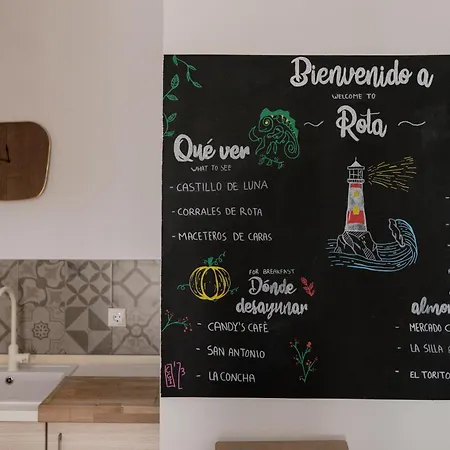 Bienvenido a
WELCOME TO
~ Rota ~
Qué ver
WHAT TO SEE
- CASTILLO DE LUNA
- CORRALES DE ROTA
- MACETEROS DE CARAS
FOR BREAKFAST
Dónde
desayunar
- CANDY'S CAFÈ
- SAN ANTONIO
- LA CONCHA
- MERCADO
- LA SILLA
- EL TORITO